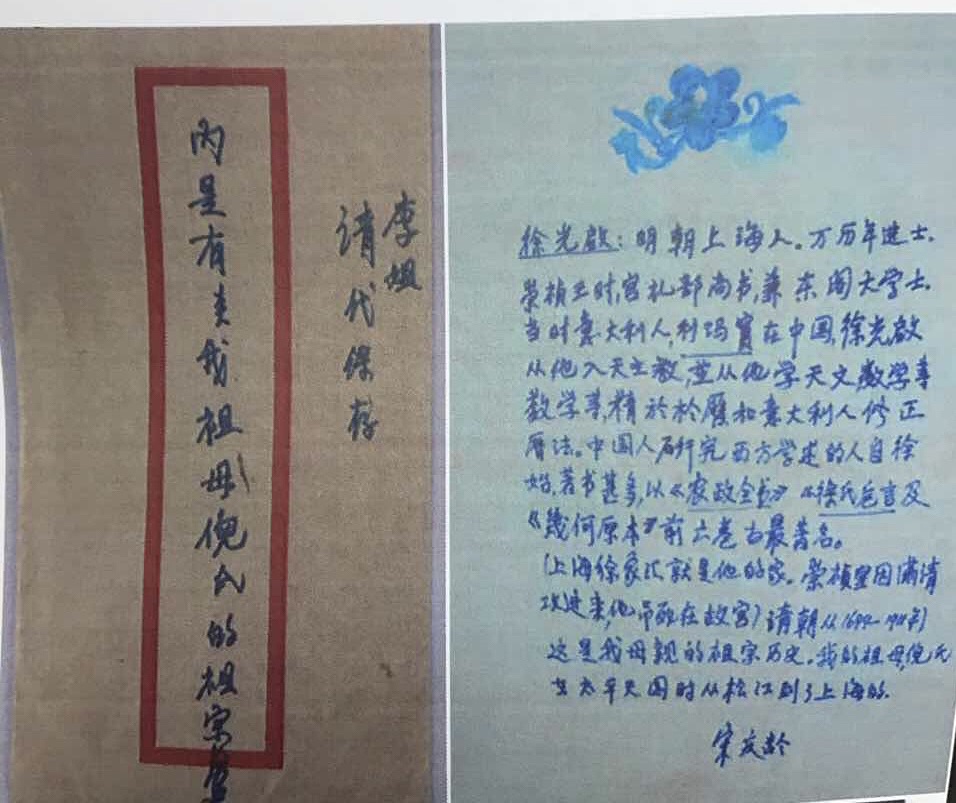 李姐
请代保存
内是有关我祖母倪氏的祖宗
徐光啟：明朝上海人。万历年进士.
崇桢王时,官礼部尚书,兼东阁大学士.
当时意大利人,利玛窦在中国,徐光啟
从他入天主教,並从他学天文数学等
数学等,精於於曆和意大利人修正
曆法。中国人研究西方学述的人自徐
始,著书甚多,以《农政全书》《徐氏庖言及
《幾何原本》前六卷为最著名。
(上海徐家汇就是他的家.崇桢皇因满清
攻进来,他吊死在故宫)清朝从
这是我母親的祖宗历史.我的祖母,倪氏
太平天国时从松江到了上海的.
宋庆龄